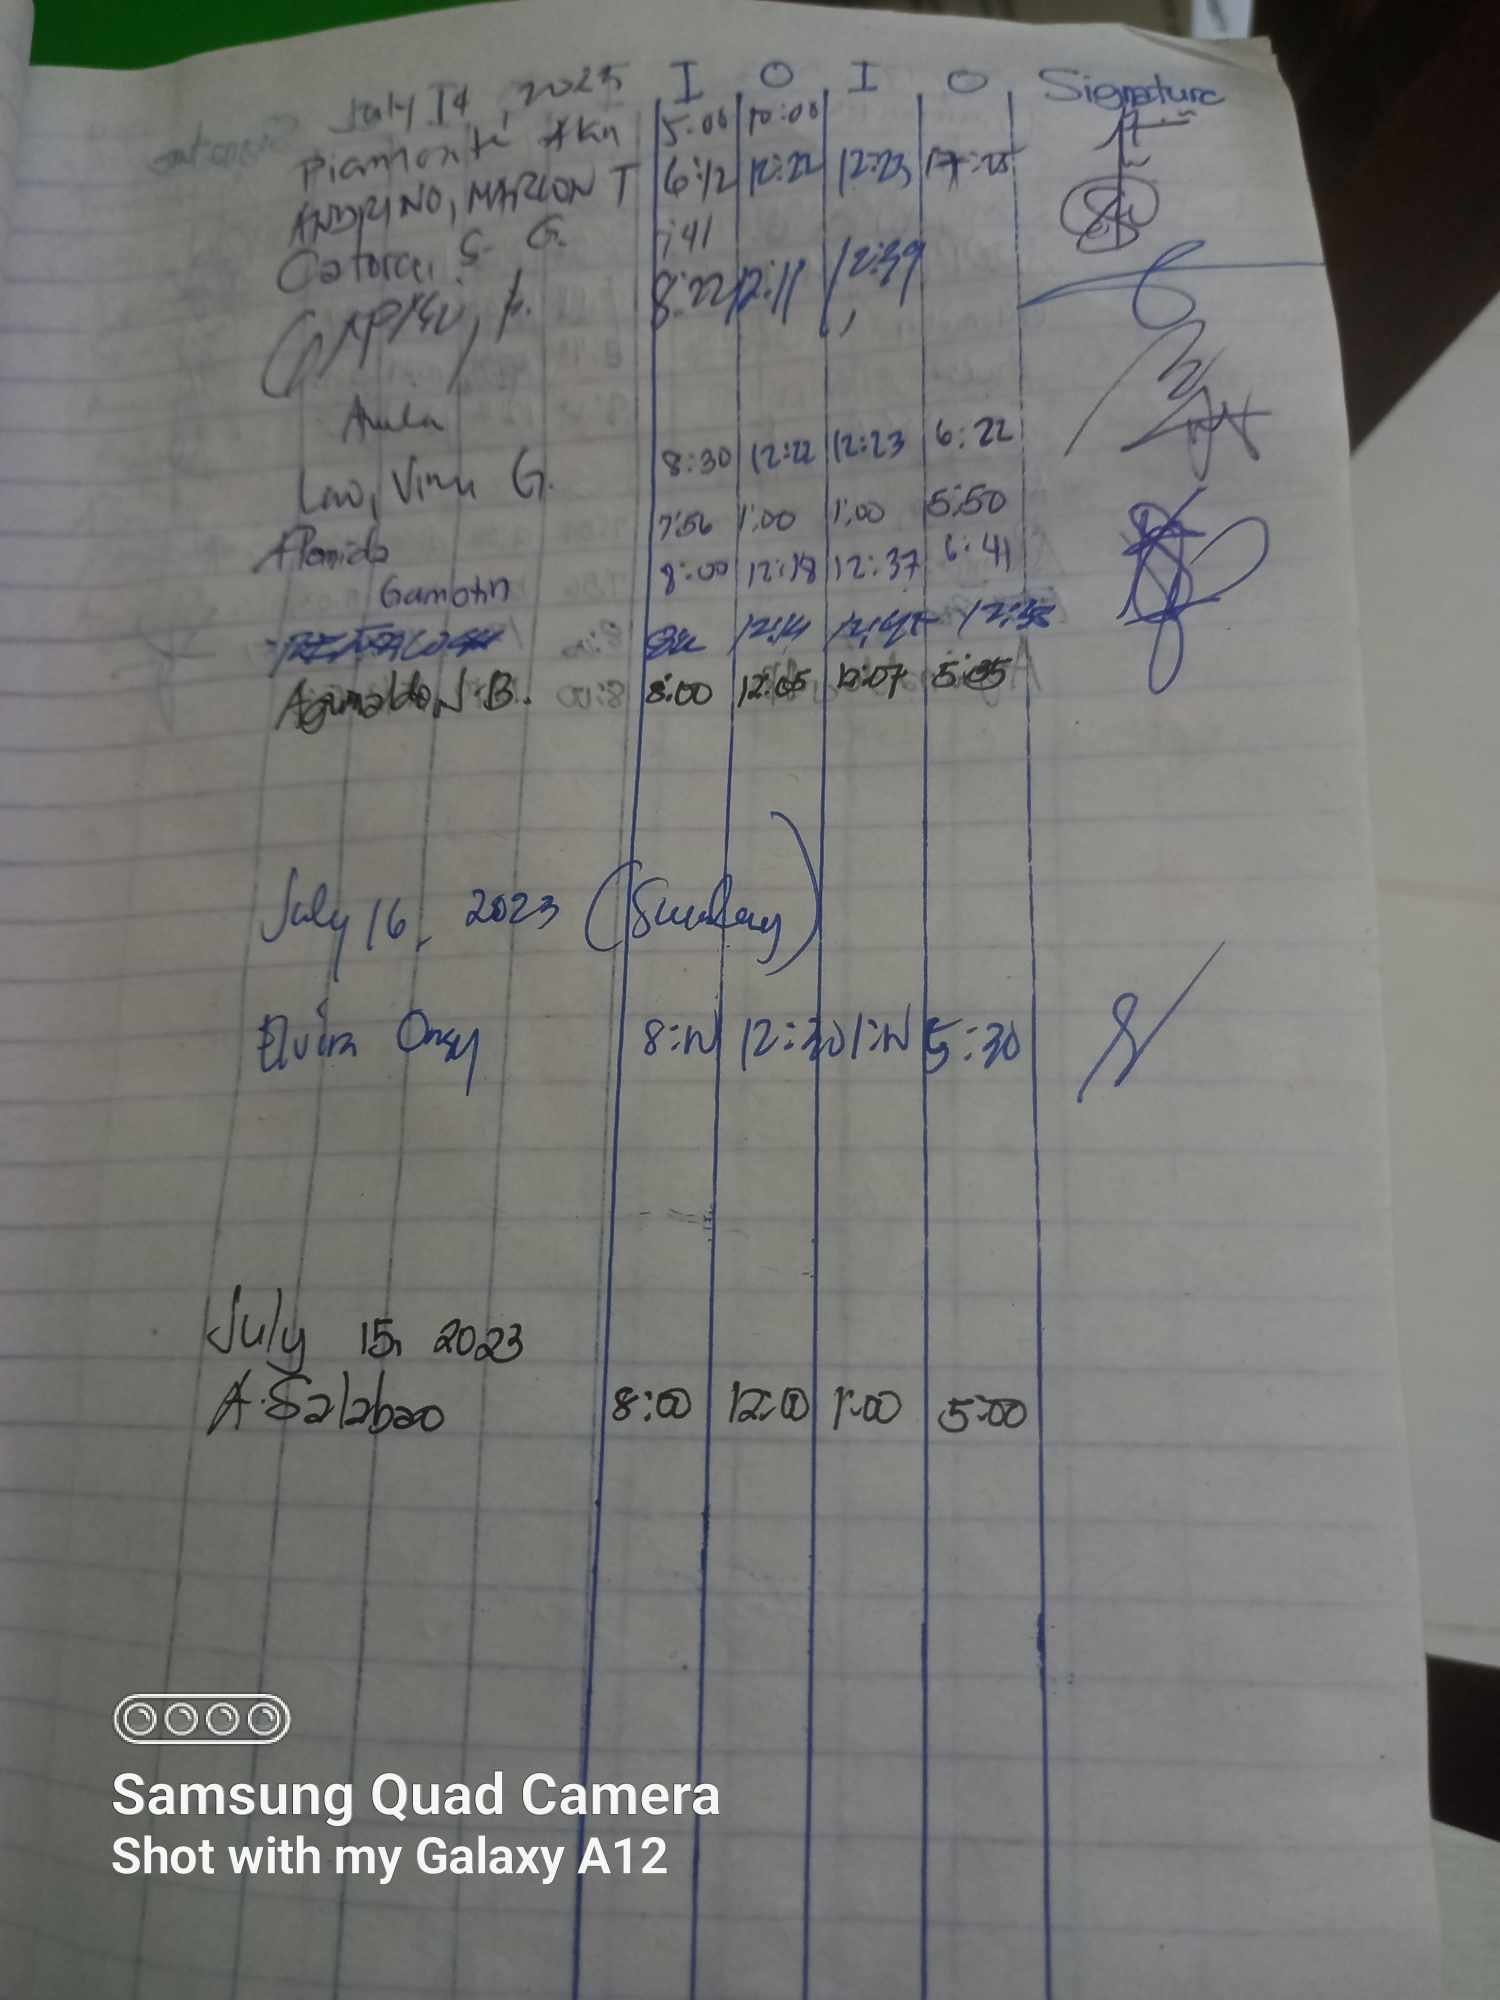 July 14, 2023 I O I O Signature
Piamonte 5:00 10:00
ANDRINO, MARLON T 6:12 12:22 12:23 17:25
Catorce, S. G. 41
8:22 12:11 12:39
Lao, G. 8:30 12:22 12:23 6:22
7:56 1:00 1:00 5:50
Gamotin 8:00 12:18 12:37 6:41
Aguinaldo, N B. 8:00 12:05 12:07 5:35
July 16, 2023 (Sunday)
Elvira Ongy 8:00 12:30 1:00 5:30
July 15, 2023
A. Salabao 8:00 12:00 1:00 5:00
Samsung Quad Camera
Shot with my Galaxy A12